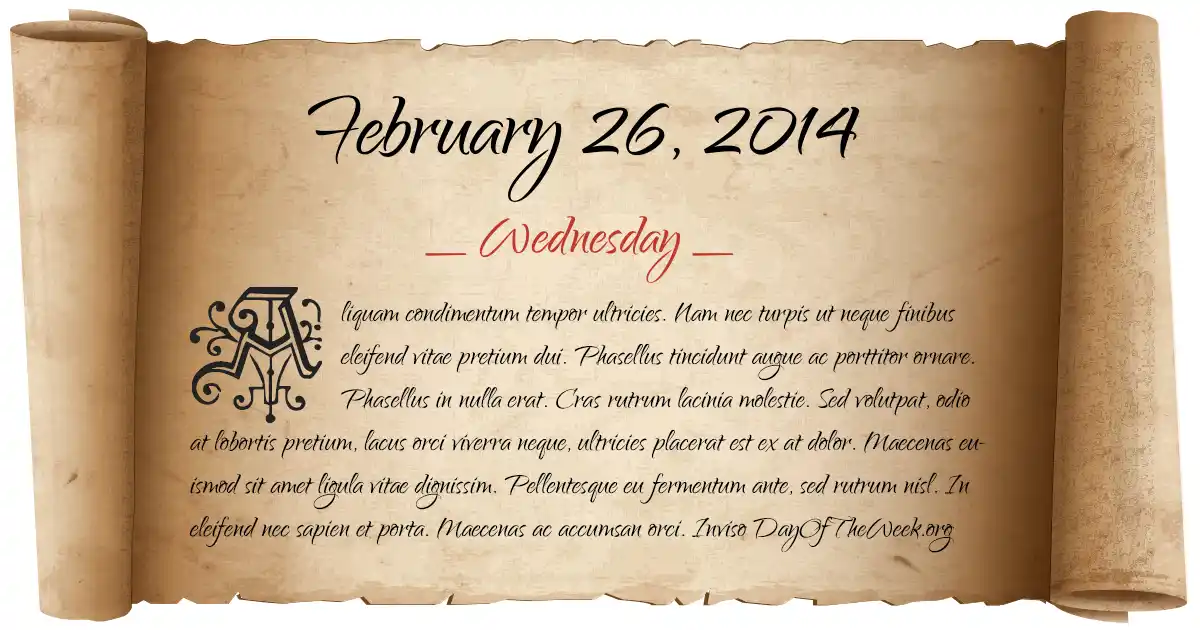 February 26, 2014
Wednesday
Aliquam condimentum tempor ultricies. Nam nec turpis ut neque finibus
eleifend vitae pretium dui. Phasellus tincidunt augue ac porttitor ornare.
Phasellus in nulla erat. Cras rutrum lacinia molestie. Sed volutpat, odio
at lobortis pretium, lacus orci viverra neque, ultricies placerat est ex at dolor. Maecenas eu-
ismod sit amet ligula vitae dignissim. Pellentesque eu fermentum ante, sed rutrum nisl. In
eleifend nec sapien et porta. Maecenas ac accumsan orci. Inviso DayOfTheWeek.org